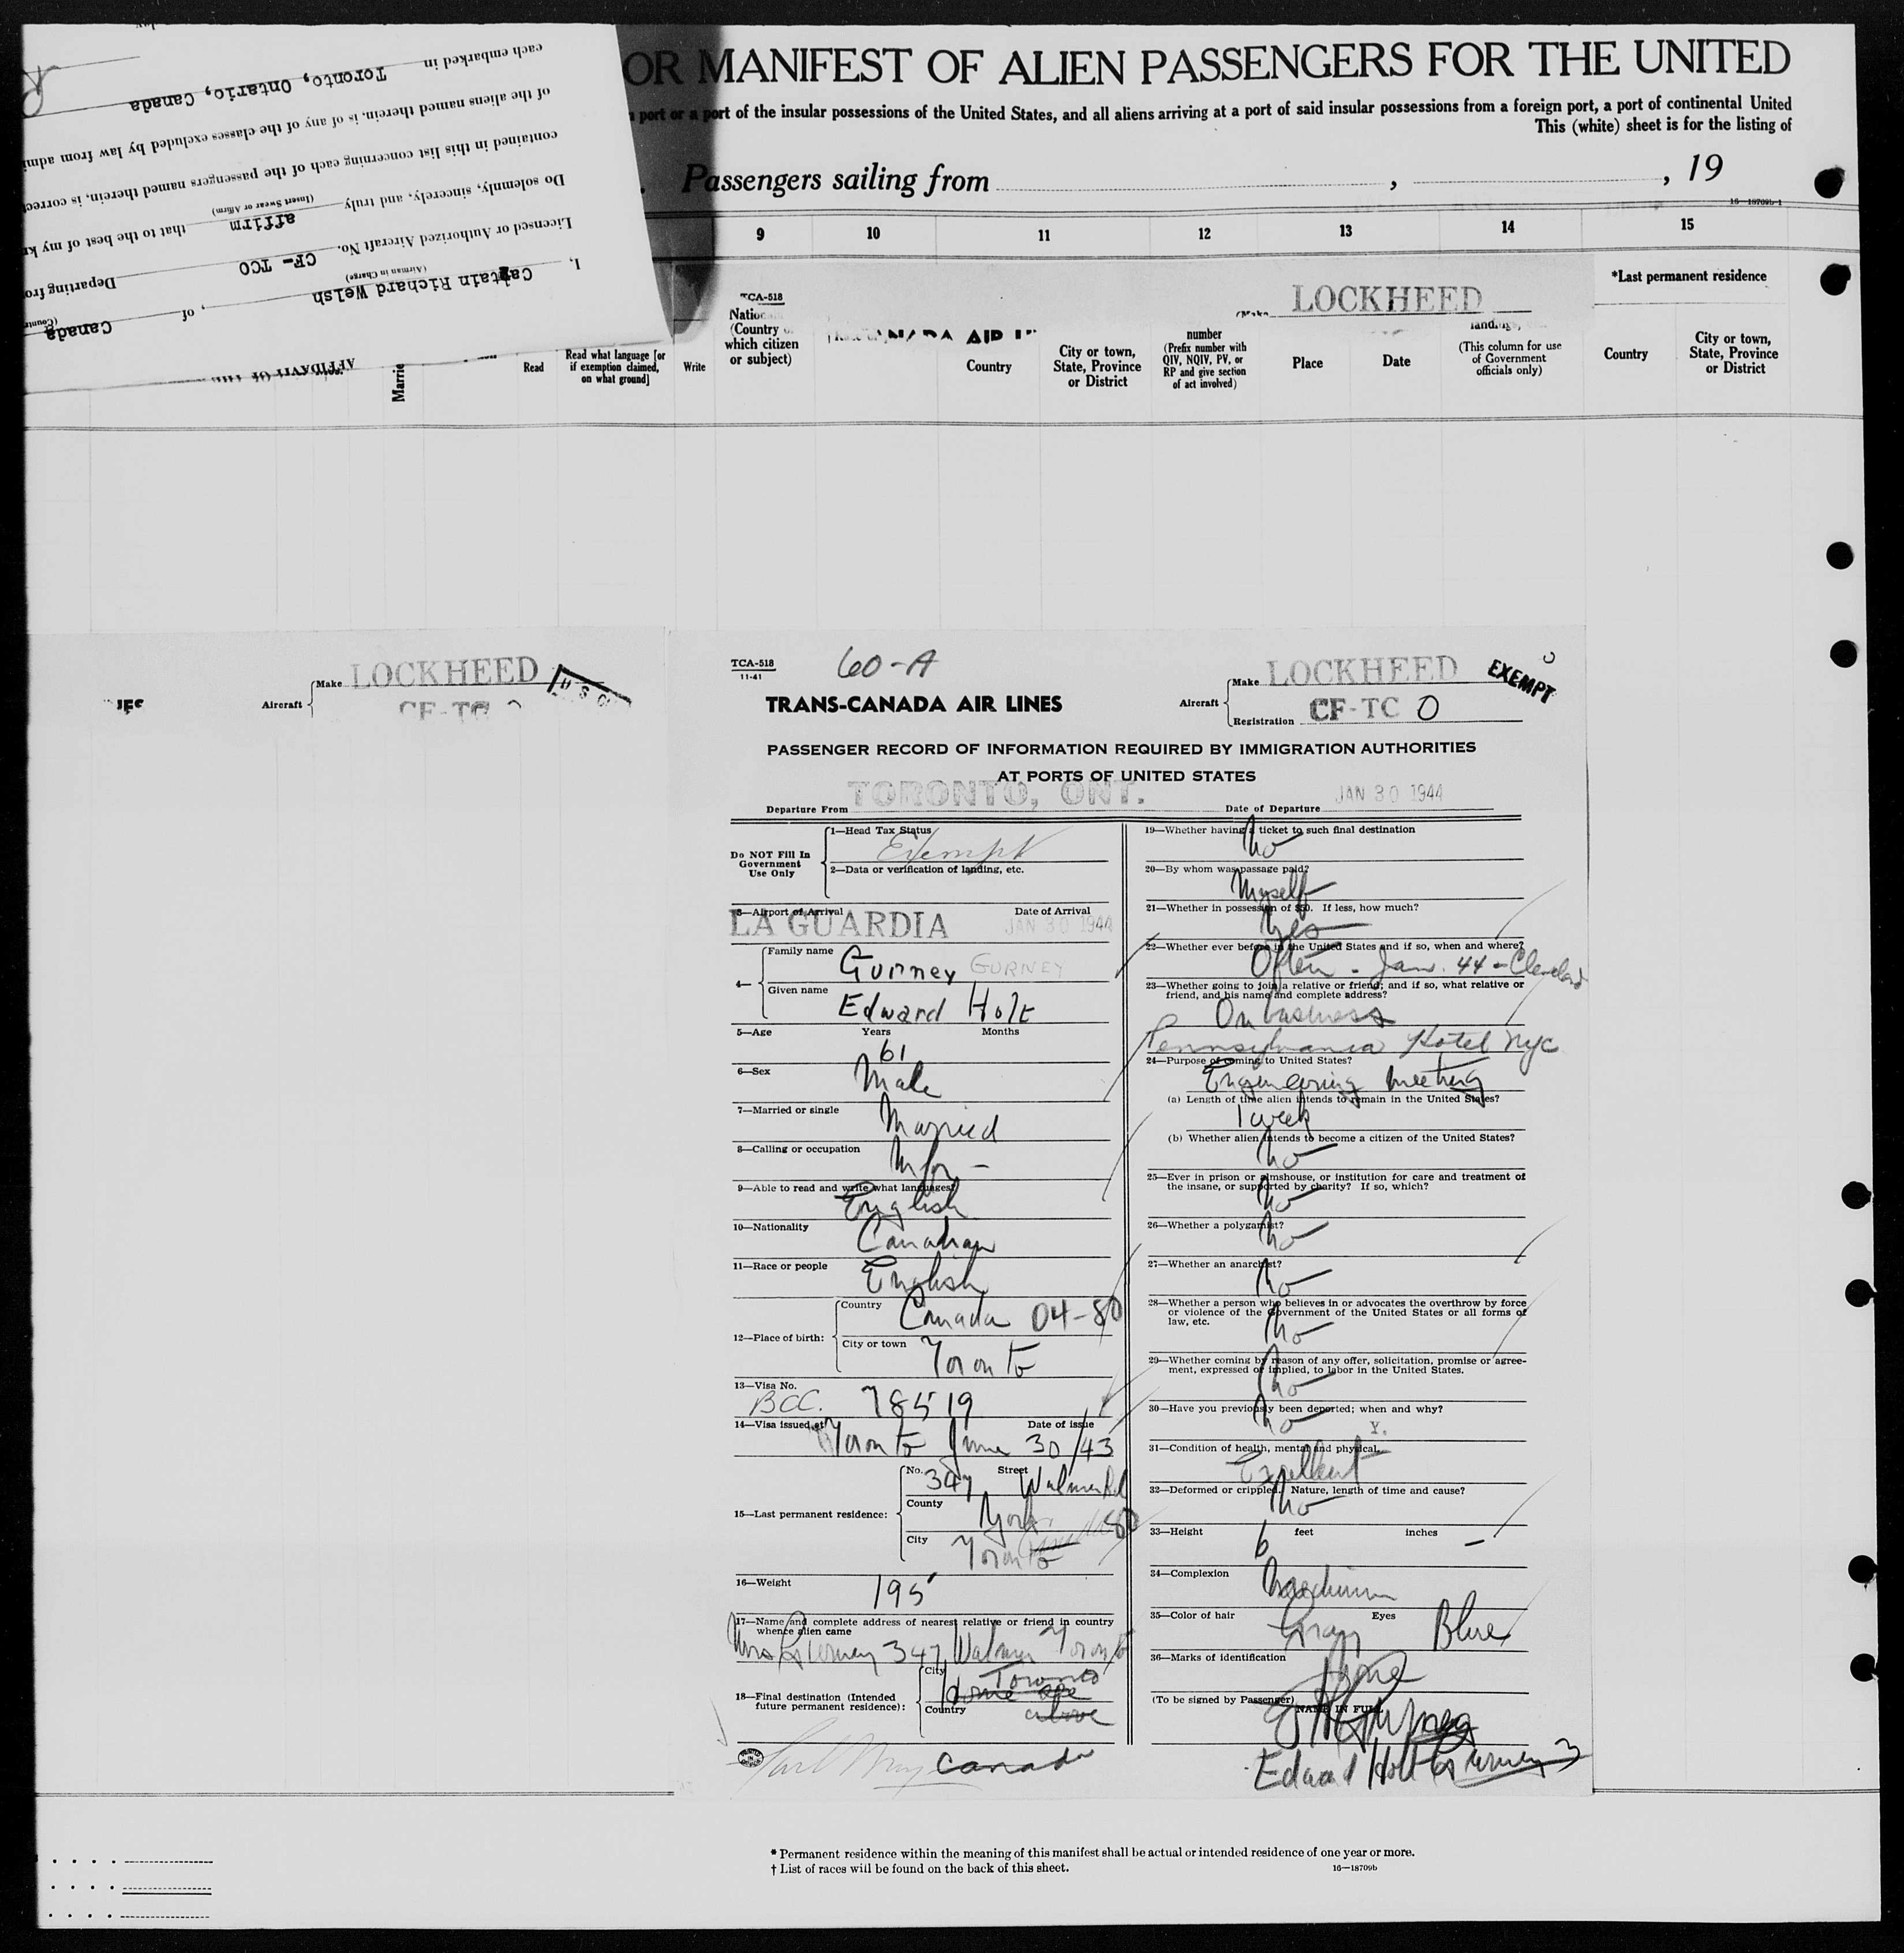 each embarked in Toronto, Ontario, Canada
of the aliens named therein, is of any of the classes excluded by law from
contained in this list concerning each of the passengers named therein, is correct
Do solemnly, sincerely, and truly affirm that to the best of my
(Insert Swear or Affirm)
Licensed or Authorized Aircraft No. CF-TCO Departing
(Airman in Charge)
I, Captain Richard Welsh, of Canada
AFFIDAVIT OF THE
OR MANIFEST OF ALIEN PASSENGERS FOR THE UNITED
port or a port of the insular possessions of the United States, and all aliens arriving at a port of said insular possessions from a foreign port, a port of continental United
This (white) sheet is for the listing of
Passengers sailing from , , 19
16—18709b-1
9 10 11 12 13 14 15
TCA-518
LOCKHEED
*Last permanent residence
(Country
which citizen
or subject)
Read
Read what language [or
if exemption claimed,
on what ground]
Write
Country
City or town,
State, Province
or District
number
(Prefix number with
QIV, NQIV, PV, or
RP and give section
of act involved)
Place
Date
(This column for use
of Government
officials only)
Country
City or town,
State, Province
or District
Aircraft
Make LOCKHEED
CF-TC
TCA-518
11-41
60-A
TRANS-CANADA AIR LINES
Aircraft
Make LOCKHEED
Registration CF-TC O
EXEMPT
PASSENGER RECORD OF INFORMATION REQUIRED BY IMMIGRATION AUTHORITIES
AT PORTS OF UNITED STATES
Departure From TORONTO, ONT. Date of Departure JAN 30 1944
Do NOT Fill In
Government
Use Only
1—Head Tax Status
Exempt
2—Data or verification of landing, etc.
3—Airport of Arrival Date of Arrival
LA GUARDIA JAN 30 1944
4—
Family name
Gurney GURNEY
Given name
Edward Holt
5—Age Years Months
61
6—Sex
Male
7—Married or single
Married
8—Calling or occupation
Mfr -
9—Able to read and write what languages?
English
10—Nationality
Canadian
11—Race or people
English
12—Place of birth:
Country Canada 04-80
City or town Toronto
13—Visa No.
BCC. 78519
14—Visa issued at Date of issue
Toronto June 30/43
15—Last permanent residence:
No. 347 Street Walmer Rd
County York 80
City Toronto
16—Weight
195
17—Name and complete address of nearest relative or friend in country
whence alien came
Mrs Gurney 347 Walmer Toronto
18—Final destination (Intended
future permanent residence):
City Toronto
same as
Country above
Canada
19—Whether having a ticket to such final destination
No
20—By whom was passage paid?
Myself
21—Whether in possession of $50. If less, how much?
Yes
22—Whether ever before in the United States and if so, when and where?
Often - Jan. 44 - Cleveland
23—Whether going to join a relative or friend; and if so, what relative or
friend, and his name and complete address?
On business
Pennsylvania Hotel NYC
24—Purpose of coming to United States?
Engineering meeting
(a) Length of time alien intends to remain in the United States?
1 week
(b) Whether alien intends to become a citizen of the United States?
No
25—Ever in prison or almshouse, or institution for care and treatment of
the insane, or supported by charity? If so, which?
No
26—Whether a polygamist?
No
27—Whether an anarchist?
No
28—Whether a person who believes in or advocates the overthrow by force
or violence of the Government of the United States or all forms of
law, etc.
No
29—Whether coming by reason of any offer, solicitation, promise or agree-
ment, expressed or implied, to labor in the United States.
No
30—Have you previously been deported; when and why?
No
31—Condition of health, mental and physical.
Excellent
32—Deformed or crippled. Nature, length of time and cause?
No
33—Height 6 feet inches —
34—Complexion
Medium
35—Color of hair Gray Eyes Blue
36—Marks of identification
None
(To be signed by Passenger) NAME IN FULL
Edward Holt Gurney
* Permanent residence within the meaning of this manifest shall be actual or intended residence of one year or more.
† List of races will be found on the back of this sheet.
16—18709b